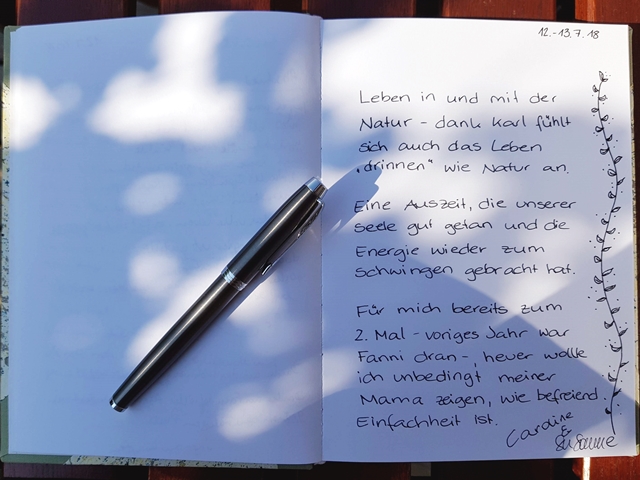 12.-13.7.18
Leben in und mit der
Natur - dank Karl fühlt
sich auch das Leben
"drinnen" wie Natur an.
Eine Auszeit, die unserer
Seele gut getan und die
Energie wieder zum
Schwingen gebracht hat.
Für mich bereits zum
2. Mal - voriges Jahr war
Fanni dran -, heuer wollte
ich unbedingt meiner
Mama zeigen, wie befreiend
Einfachheit ist.
Caroline
&
Susanne